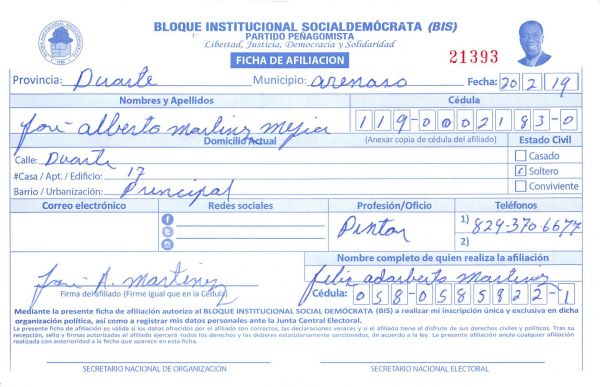 BLOQUE INSTITUCIONAL SOCIALDEMÓCRATA (BIS)
PARTIDO PEÑAGOMISTA
Libertad, Justicia, Democracia y Solidaridad
FICHA DE AFILIACION
21393
Provincia: Duarte Municipio: arenoso Fecha: 20 2 19
Nombres y Apellidos Cédula
José alberto martinez mejia 119-0002183-0
Domicilio Actual (Anexar copia de cédula del afiliado) Estado Civil
Calle: Duarte Casado
#Casa / Apt. / Edificio: 17 Soltero
Barrio / Urbanización: Principal Conviviente
Correo electrónico Redes sociales Profesión/Oficio Teléfonos
Pintor 1) 829-370-6677
2)
Nombre completo de quien realiza la afiliación
José A. Martinez felix adarberto Martinez
Firma del afiliado (Firme igual que en la Cédula) Cédula: 058-0585822-1
Mediante la presente ficha de afiliación autorizo al BLOQUE INSTITUCIONAL SOCIAL DEMÓCRATA (BIS) a realizar mi inscripción única y exclusiva en dicha
organización política, así como a registrar mis datos personales ante la Junta Central Electoral.
La presente ficha de afiliación es válida si los datos ofrecidos por el afiliado son correctos, las declaraciones veraces y si el afiliado tiene el disfrute de sus derechos civiles y políticos. Tras su
recepción, sello y firmas autorizadas el afiliado ejercerá todos los derechos y los deberes estatutariamente sancionados, de acuerdo a la ley. La presente afiliación anula cualquier afiliación
realizada con anterioridad a la fecha que aparece en esta ficha.
SECRETARIO NACIONAL DE ORGANIZACIÓN SECRETARIO NACIONAL ELECTORAL